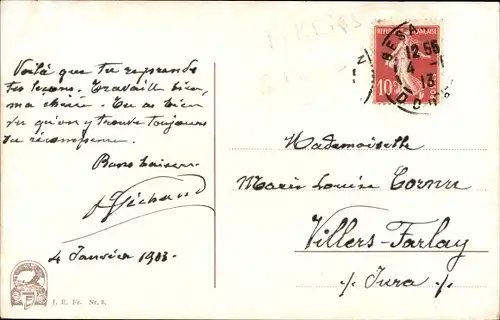 Voilà que tu reprends
tes leçons. Travaille bien,
ma chérie. Tu as bien
vu qu'on y trouve toujours
sa récompense.
Bons baisers.
4 Janvier 1913.
J. E. Fr. Nr. 8.
BESA
12 55
4 - 1
13
DOUBS
10
Mademoiselle
Marie Louise Cornu
Villers-Farlay
Jura